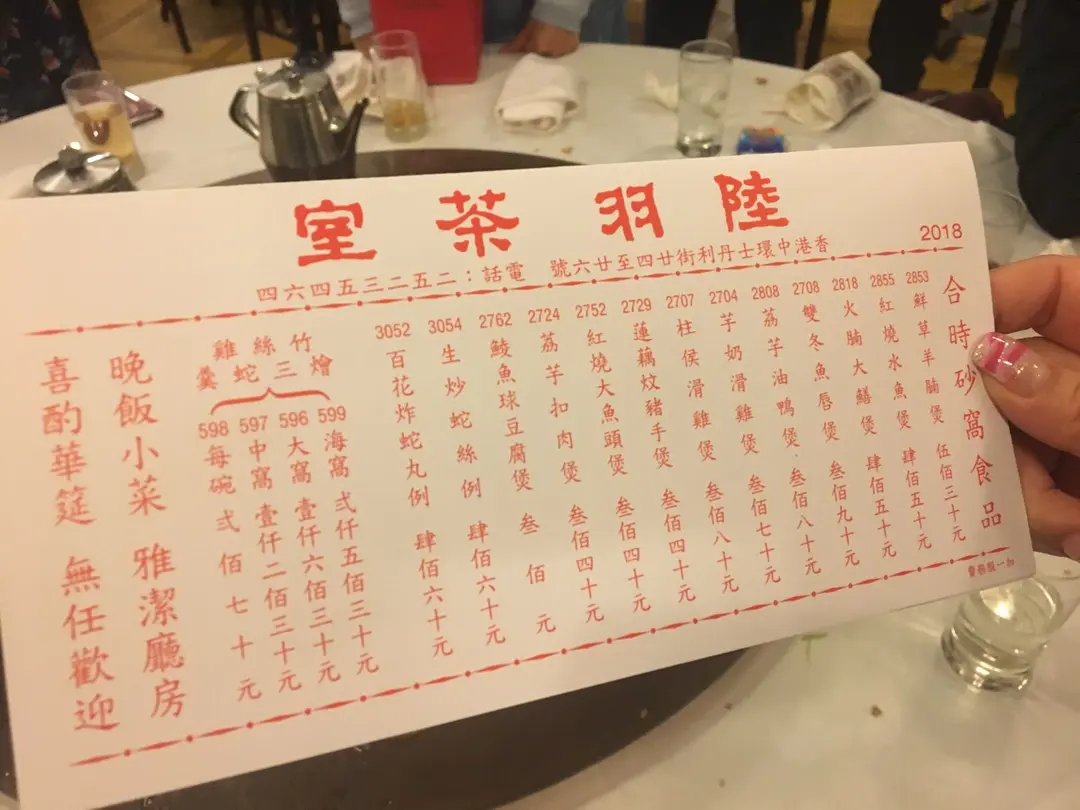 陸羽茶室
2018
香港中環士丹利街廿四至廿六號 電話：二五二三五四六四
合時砂窩食品
加一服務費
2853 鮮草羊腩煲 伍佰三十元
2855 紅燒水魚煲 肆佰五十元
2818 火腩大鱔煲 肆佰五十元
2708 雙冬魚唇煲 叁佰九十元
2808 荔芋油鴨煲 叁佰八十元
2704 芋奶滑雞煲 叁佰七十元
2707 柱侯滑雞煲 叁佰八十元
2729 蓮藕炆豬手煲 叁佰四十元
2752 紅燒大魚頭煲 叁佰四十元
2724 荔芋扣肉煲 叁佰四十元
2762 鯪魚球豆腐煲 叁佰元
3054 生炒蛇絲例 肆佰六十元
3052 百花炸蛇丸例 肆佰六十元
竹絲雞燴三蛇羹
599 海窩 弍仟五佰三十元
596 大窩 壹仟六佰三十元
597 中窩 壹仟二佰三十元
598 每碗 弍佰七十元
晚飯小菜 雅潔廳房
喜酌華筵 無任歡迎